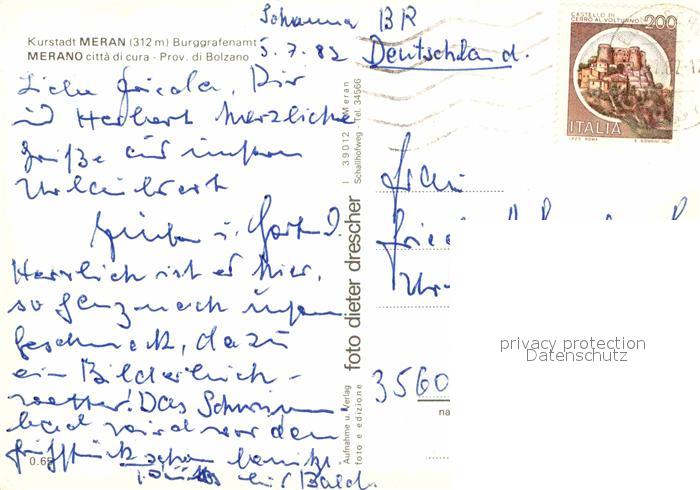 Kurstadt MERAN (312 m) Burggrafenamt
MERANO città di cura - Prov. di Bolzano
Johanna BR
5.7.82 Deutschland.
CASTELLO DI
CERRO AL VOLTURNO 200
ITALIA
I.P.Z.S. ROMA
Liebe Frieda, Dir
und Herbert herzliche
Grüße aus unserem
Urlaubsort
Günter u.
Herrlich ist es hier,
so ganz nach unserem
Geschmack, dazu
ein Bilderbuch-
wetter! Das Schwimm-
bad wird vor dem
Frühstück schon benützt.
bis Bald.
0.65
foto dieter drescher
I 39012 Meran
Schallhofweg Tel. 34566
Aufnahme u. Verlag
foto e edizione
Frau
3560
na
privacy protection
Datenschutz